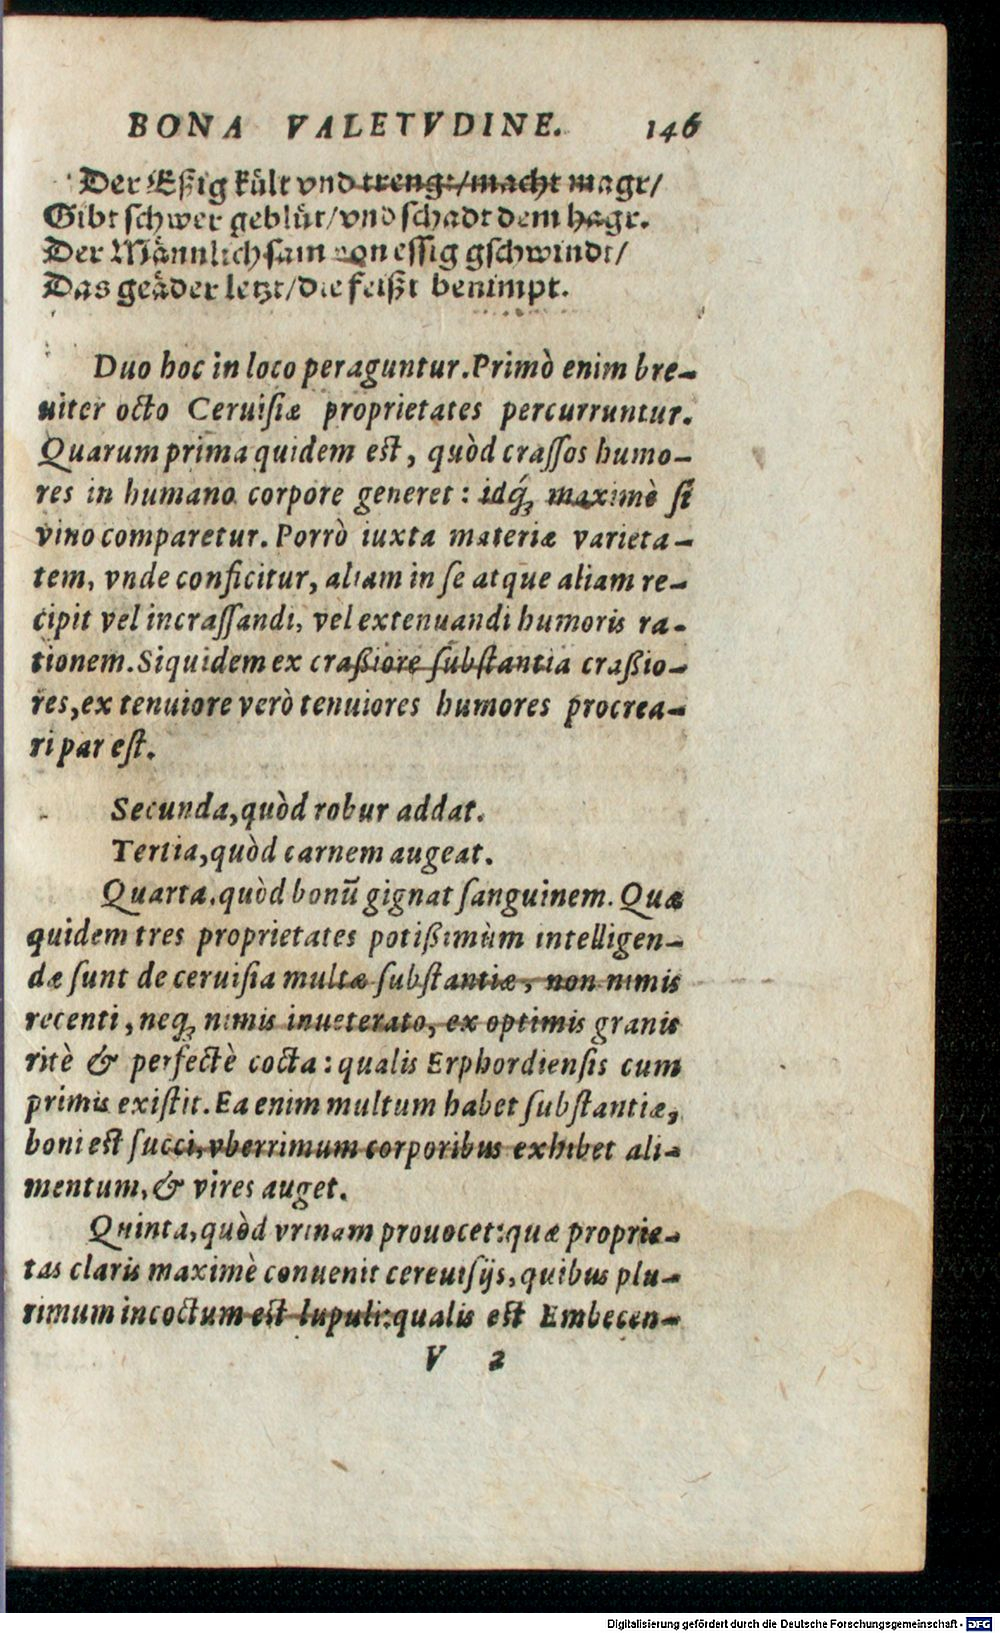 BONA VALETVDINE. 146
Der Eßig kült vnd trengt/macht magr/
Gibt schwer geblüt/vnd schadt dem hagr.
Der Männlich sam von essig gschwindt/
Das geäder letzt/die feißt benimpt.
Duo hoc in loco peraguntur. Primò enim bre-
uiter octo Ceruisiæ proprietates percurruntur.
Quarum prima quidem est, quòd crassos humo-
res in humano corpore generet: idq́; maximè si
vino comparetur. Porrò iuxta materiæ varieta-
tem, vnde conficitur, aliam in se atque aliam re-
cipit vel incrassandi, vel extenuandi humoris ra-
tionem. Siquidem ex craßiore substantia craßio-
res, ex tenuiore verò tenuiores humores procrea-
ri par est.
Secunda, quòd robur addat.
Tertia, quòd carnem augeat.
Quarta, quòd bonū gignat sanguinem. Quæ
quidem tres proprietates potißimùm intelligen-
dæ sunt de ceruisia multæ substantiæ, non nimis
recenti, neq; nimis inueterato, ex optimis granis
ritè & perfectè cocta: qualis Erphordiensis cum
primis existit. Ea enim multum habet substantiæ,
boni est succi, vberrimum corporibus exhibet ali-
mentum, & vires auget.
Quinta, quòd vrinam prouocet: quæ proprie-
tas claris maximè conuenit cereuisijs, quibus plu-
rimum incoctum est lupuli: qualis est Embecen-
V 2
Digitalisierung gefördert durch die Deutsche Forschungsgemeinschaft - DFG